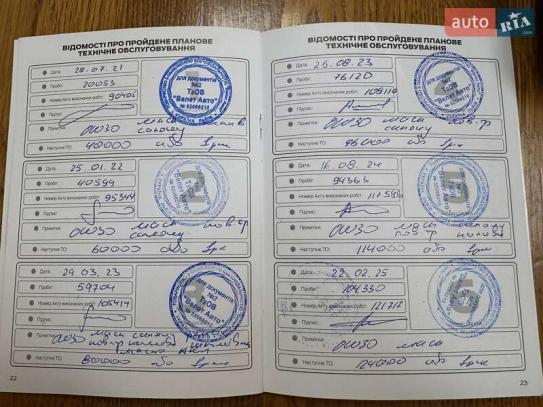 auto RIA.com
ВІДОМОСТІ ПРО ПРОЙДЕНЕ ПЛАНОВЕ
ТЕХНІЧНЕ ОБСЛУГОВУВАННЯ
Дата: 28.07.21
Пробіг: 20053
Номер Акту виконання робіт: 90405
Підпис:
Примітки: 0W30 масл
салону
Наступне ТО: 40000 або 1рік
для документів
№2
ТзОВ
"Велет Авто"
Дата: 25.01.22
Пробіг: 40599
Номер Акту виконання робіт: 95344
Підпис:
Примітки: 0W30 масл пов-тр
салону
Наступне ТО: 60000 або 1рік
Дата: 29.03.23
Пробіг: 59704
Номер Акту виконання робіт: 105414
Підпис:
Примітки: 0W30 масл салону
Наступне ТО: 80000 або 1рік
для документів
№2
ТзОВ
"Велет Авто"
22
ВІДОМОСТІ ПРО ПРОЙДЕНЕ ПЛАНОВЕ
ТЕХНІЧНЕ ОБСЛУГОВУВАННЯ
Дата: 25.08.23
Пробіг: 76120
Номер Акту виконання робіт: 109114
Підпис:
Примітки: 0W30 масл пов-тр
салону
Наступне ТО: 96000 або 1рік
Дата: 16.08.24
Пробіг: 94363
Номер Акту виконання робіт:
Підпис:
Примітки: 0W30 масл салону
Наступне ТО: 114000 або 1рік
Дата: 22.02.25
Пробіг: 104330
Номер Акту виконання робіт: 121717
Підпис:
Примітки: 0W30 масл
Наступне ТО: 124000 або 1рік
23